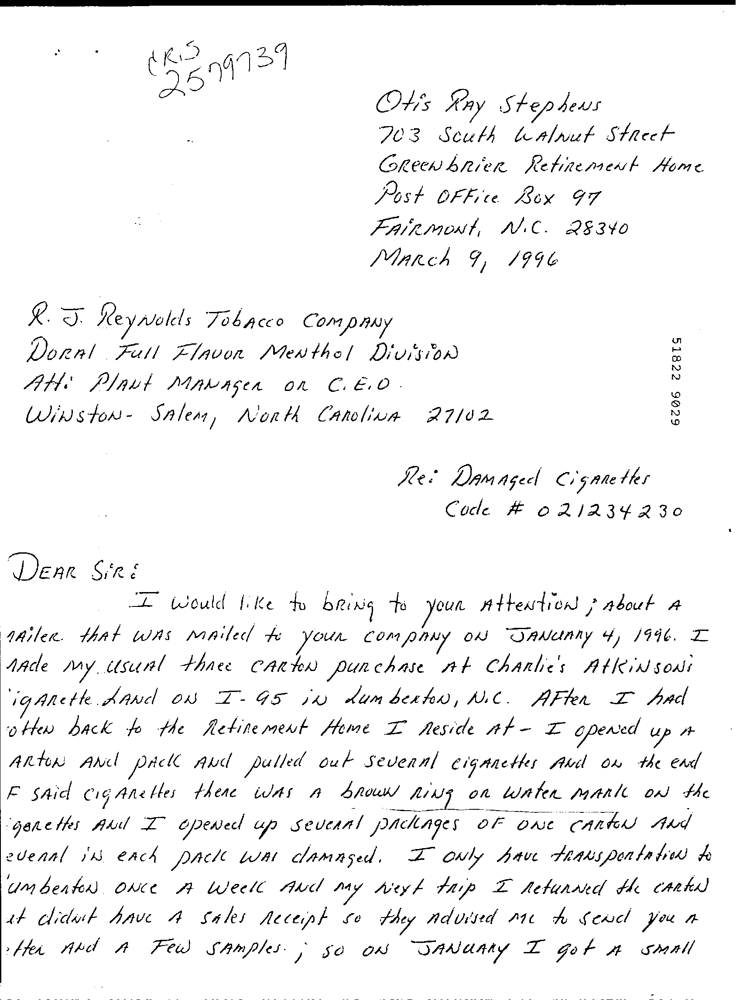 CRS
2579739
Otis Ray Stephens
703 South Walnut Street
Greenbrier Retirement Home
Post Office Box 97
Fairmont, N.C. 28340
March 9, 1996
R. J. Reynolds Tobacco Company
Doral Full Flavor Menthol Division
Att: Plant Manager or C.E.O.
Winston-Salem, North Carolina 27102
51822 9029
Re: Damaged Cigarettes
Code # 021234230
Dear Sir:
I would like to bring to your attention; about a
ailer that was mailed to your company on January 4, 1996. I
ade my usual three carton purchase at Charlie's Atkinsons
igarette Land on I-95 in Lumberton, N.C. After I had
otten back to the Retirement Home I reside at - I opened up a
arton and pack and pulled out several cigarettes and on the end
f said cigarettes there was a brown ring or water mark on the
garettes and I opened up several packages of one carton and
everal in each pack was damaged. I only have transportation to
umberton once a week and my next trip I returned the carton
ut didnt have a sales receipt so they advised me to send you a
etter and a few samples; so on January I got a small